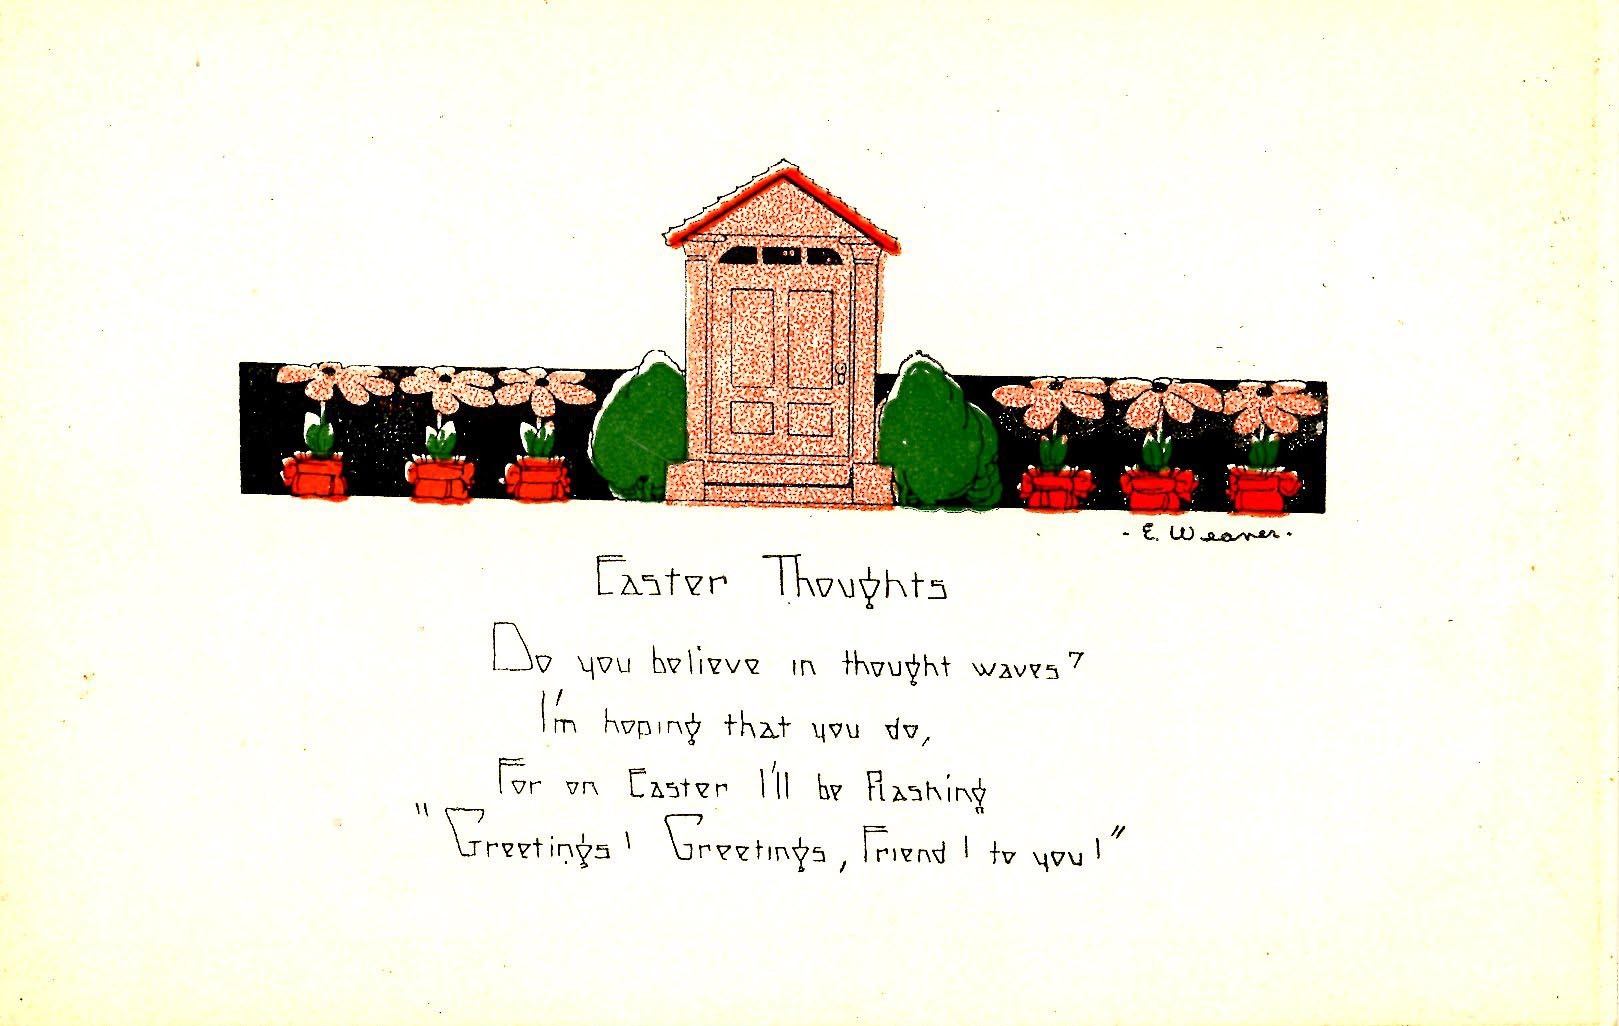 - E. Weaver. -
Easter Thoughts
Do you believe in thought waves?
I'm hoping that you do,
For on Easter I'll be flashing
"Greetings! Greetings, Friend! to you!"